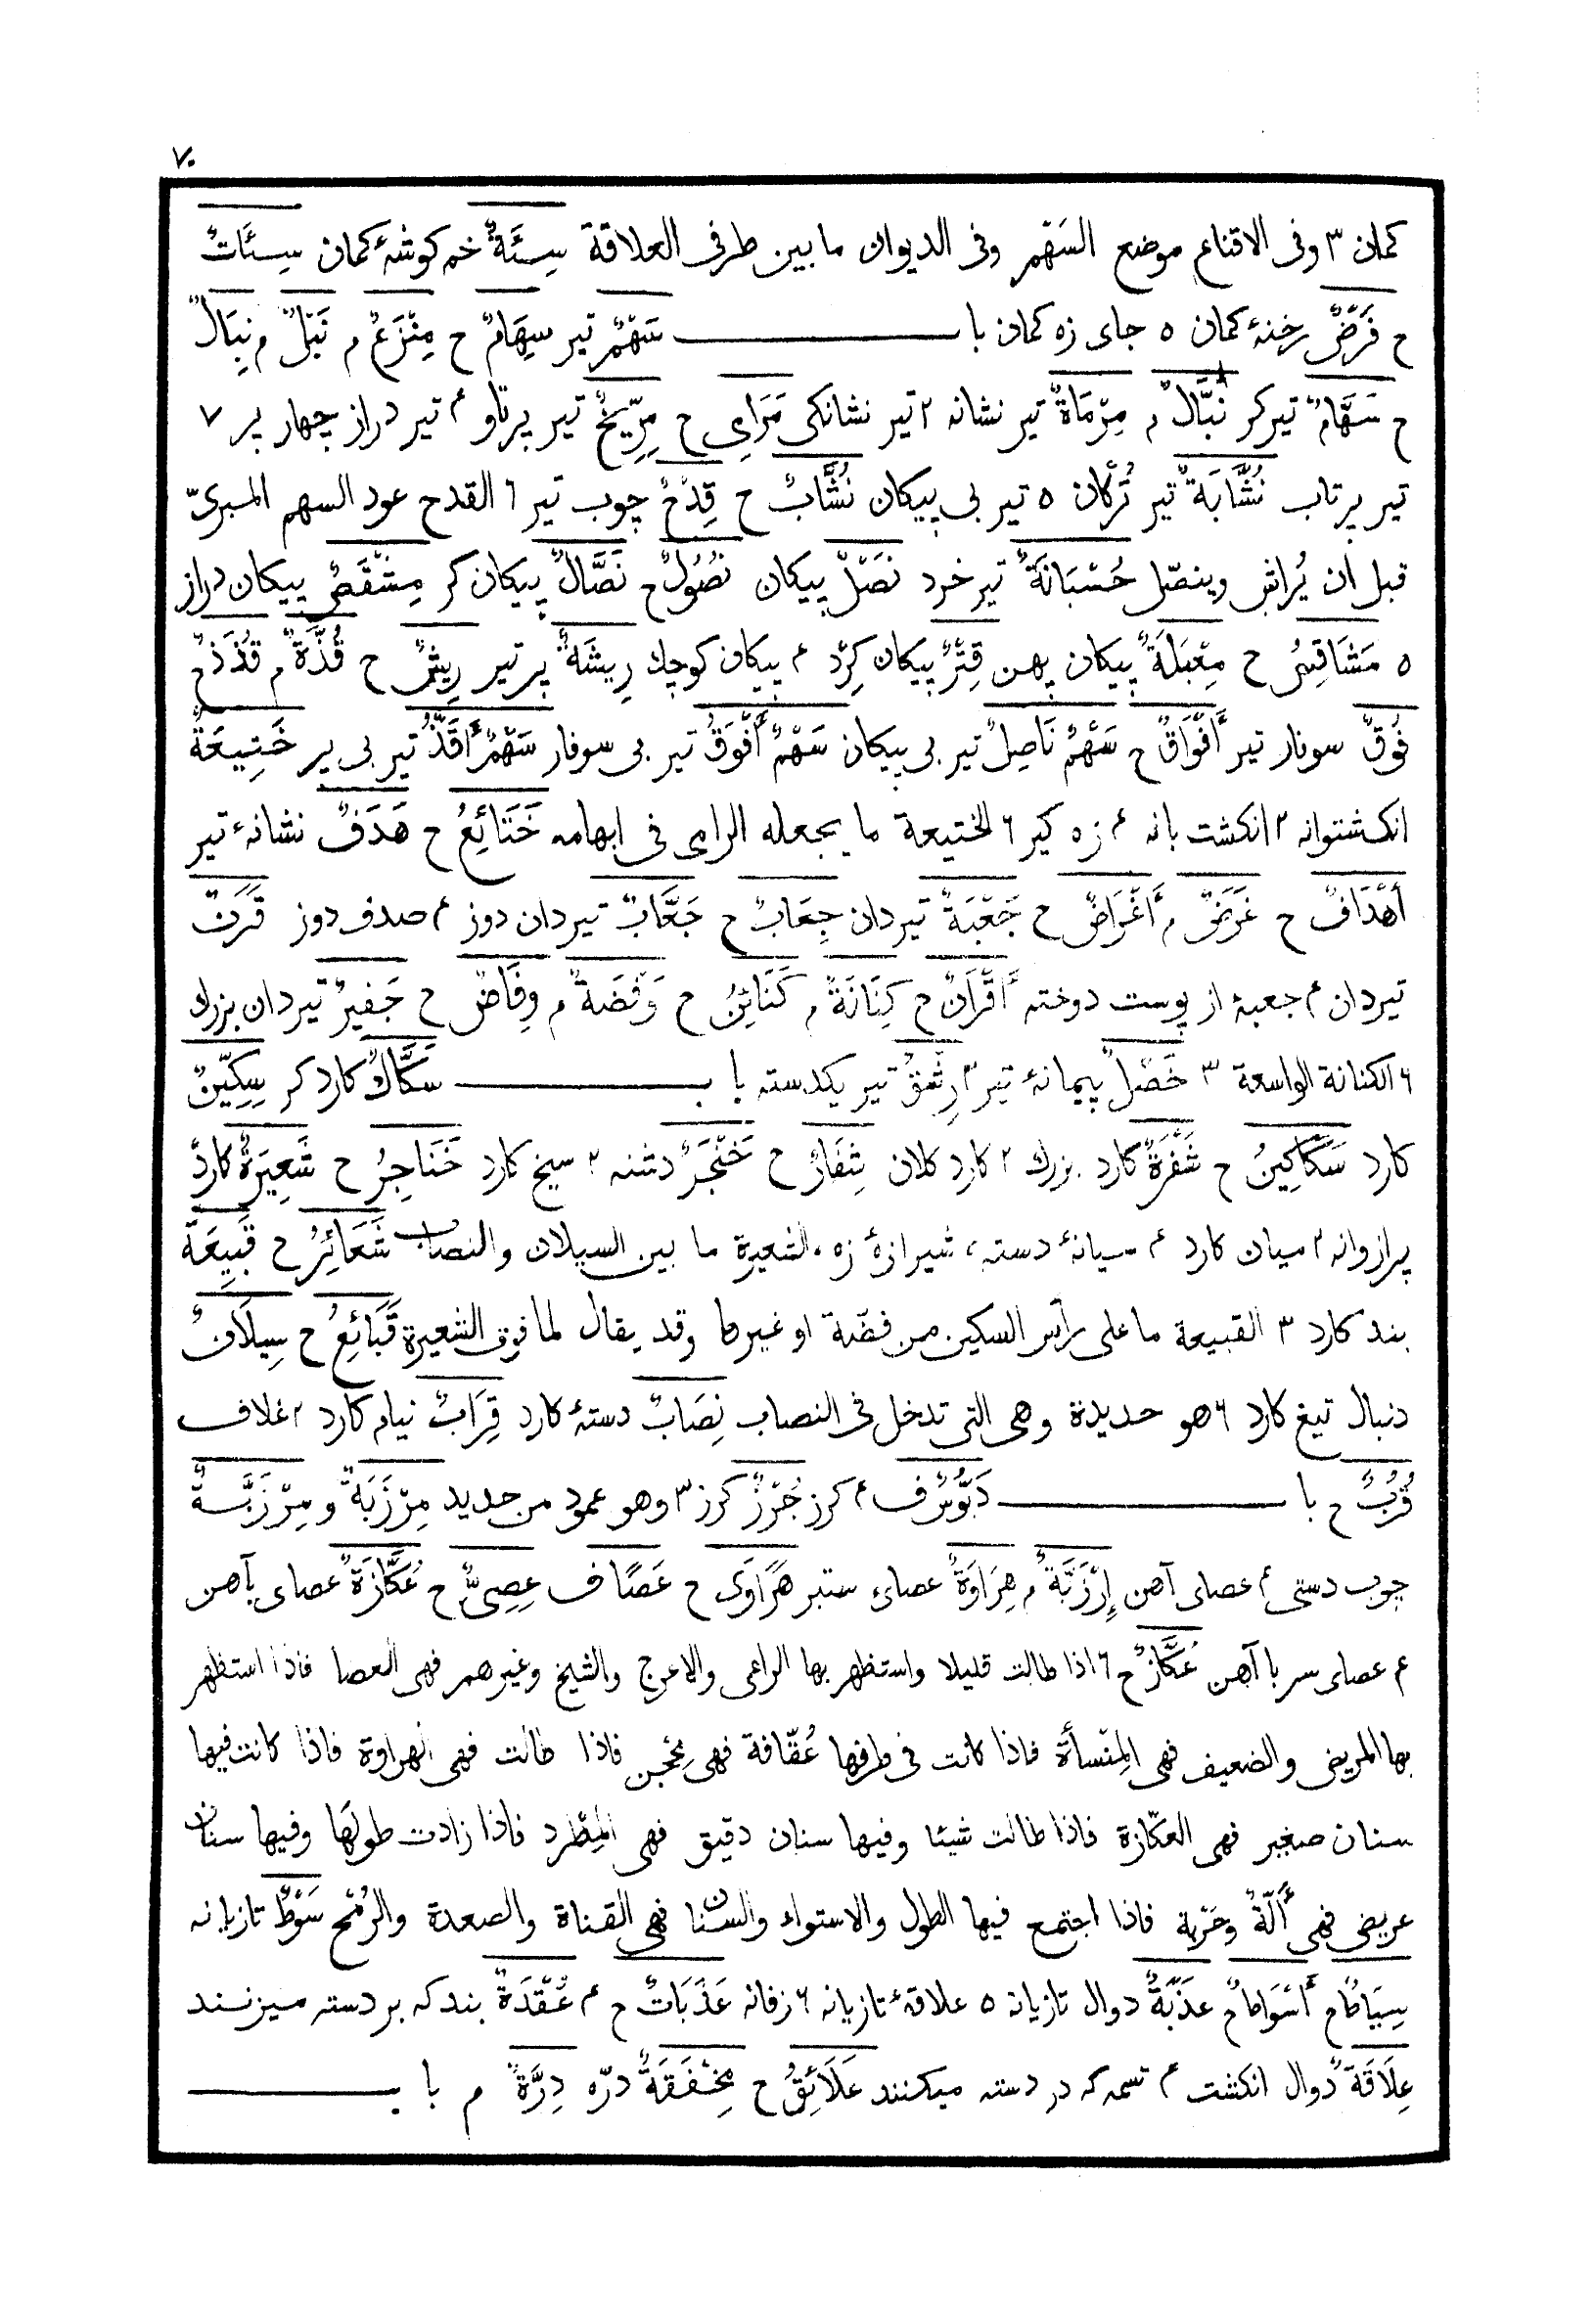 ۷۰
كمان ۳ وفى الاقناع موضع السَهْم وفى الديوان ما بين طرفى العلاقة سِئَةٌ خم كوشهٔ كمان سِئَاتٌ
ح فَرْضٌ رخنهٔ كمان ۵ جاى زه كمان با ــــــــ سَهْمٌ تير سِهَامٌ ح مِنْزَعٌ م نَبْلٌ م نِبَالٌ
ح سَهَّامٌ تيركر نَبَّالٌ م مِرْمَاةٌ تير نشانه ۲ تير نشانكى مَرَامِى ح مِرِّيخٌ تير پرتاو ۴ تير دراز چهار پر ۷
تير پرتاب نُشَّابَةٌ تير تُركان ۵ تير بى پيكان نُشَّابٌ ح قِدْحٌ چوب تير ٦ القدح عود السهم المبرىّ
قبل ان يُراش وينصّل حُسْبَانَةٌ تير خرد نَصْلٌ پيكان نُصُولٌ ح نَصَّالٌ پيكان كر مِشْقَصٌ پيكان دراز
۵ مَشَاقِصُ ح مِعْبَلَةٌ پيكان پهن قِتْرٌ پيكان كِرد ۴ پيكان كوچك رِيشَةٌ پر تير رِيشٌ ح قُذَّةٌ م قُذَذٌ ح
فُوقٌ سوفار تير أَفْوَاقٌ ح سَهْمٌ نَاصِلٌ تير بى پيكان سَهْمٌ أَفْوَقُ تير بى سوفار سَهْمٌ أَقَذُّ تير بى پر خَتِيعَةٌ
انكشتوانه ۲ انكشت بانه ۴ زه كير ٦ الختيعة ما يجعله الرامى فى ابهامه خَتَائِعُ ح هَدَفٌ نشانهٔ تير
أَهْدَافٌ ح غَرَضٌ م أَغْرَاضٌ ح جَعْبَةٌ تيردان جِعَابٌ ح جَعَّابٌ تيردان دوز ۴ صدف دوز قَرَنٌ
تيردان ۴ جعبهٔ از پوست دوخته أَقْرَانٌ ح كِنَانَةٌ م كَنَائِنُ ح وَفْضَةٌ م وِفَاضٌ ح جَفِيرٌ تيردان بزرك
٦ الكنانة الواسعة ۳ خَصْلٌ پيمانهٔ تير ۳ رِشْقٌ تير يكدسته با بـــــــ سَكَّاكٌ كارد كر سِكِّينٌ
كارد سَكَاكِينُ ح شَفْرَةٌ كارد بزرك ۲ كارد كلان شِفَارٌ ح خَنْجَرٌ دشنه ۲ سيخ كارد خَنَاجِرُ ح شَعِيرَةٌ كارد
پرازوانه ۲ ميان كارد ۴ ميانهٔ دسته، شيرازهٔ زه، الشعيرة ما بين السيلان والنصاب شَعَائِرُ ح قَبِيعَةٌ
بند كارد ۳ القبيعة ما على رأس السكين من فضّة او غيرها وقد يقال لما فوق الشعيرة قَبَائِعُ ح سِيلَانٌ
دنبال تيغ كارد ٦ هو حديدة وهى التى تدخل فى النصاب نِصَابٌ دستهٔ كارد قِرَابٌ نيام كارد ۲ غلاف
قُرُبٌ ح با ــــــــ دَبُّوسٌ ف ۴ كرز جُرْزٌ كرز ۳ وهو عمود من حديد مِرْزَبَةٌ و مِرْزَبَّةٌ
چوب دستى ۴ عصاى آهن إِرْزَبَّةٌ م هِرَاوَةٌ عصاىِ ستبر هَرَاوَى ح عَصًا ف عِصِىٌّ ح عُكَّازَةٌ عصاى بآهن
۴ عصاى سر با آهن عُكَّازٌ ح ٦ اذا طالت قليلا واستظهر بها الراعى والاعرج والشيخ وغيرهم فهى العصا فاذا استظهر
بها المريض والضعيف فهى المِنْسأة فاذا كانت فى طرفها عُقّافة فهى مِحْجن فاذا طالت فهى الهراوة فاذا كانت فيها
سنان صغير فهى العكّازة فاذا طالت شيئا وفيها سنان دقيق فهى المِطْرد فاذا زادت طولها وفيها سنان
عريض فهى أَلّةٌ وحَرْبة فاذا اجتمع فيها الطول والاستواء والسنان فهى القناة والصعدة والرُمْح سَوْطٌ تازيانه
سِيَاطٌ م أَسْوَاطٌ م عَذَبَةٌ دوال تازيانه ۵ علاقهٔ تازيانه ٦ زفانه عَذَبَاتٌ ح ۴ عُقْدَةٌ بند كه بر دسته ميزنند
عِلَاقَةٌ دوال انكشت ۴ تسمه كه در دسته ميكنند عَلَائِقُ ح مِخْفَقَةٌ درّه دِرَّةٌ م با بـــــــ